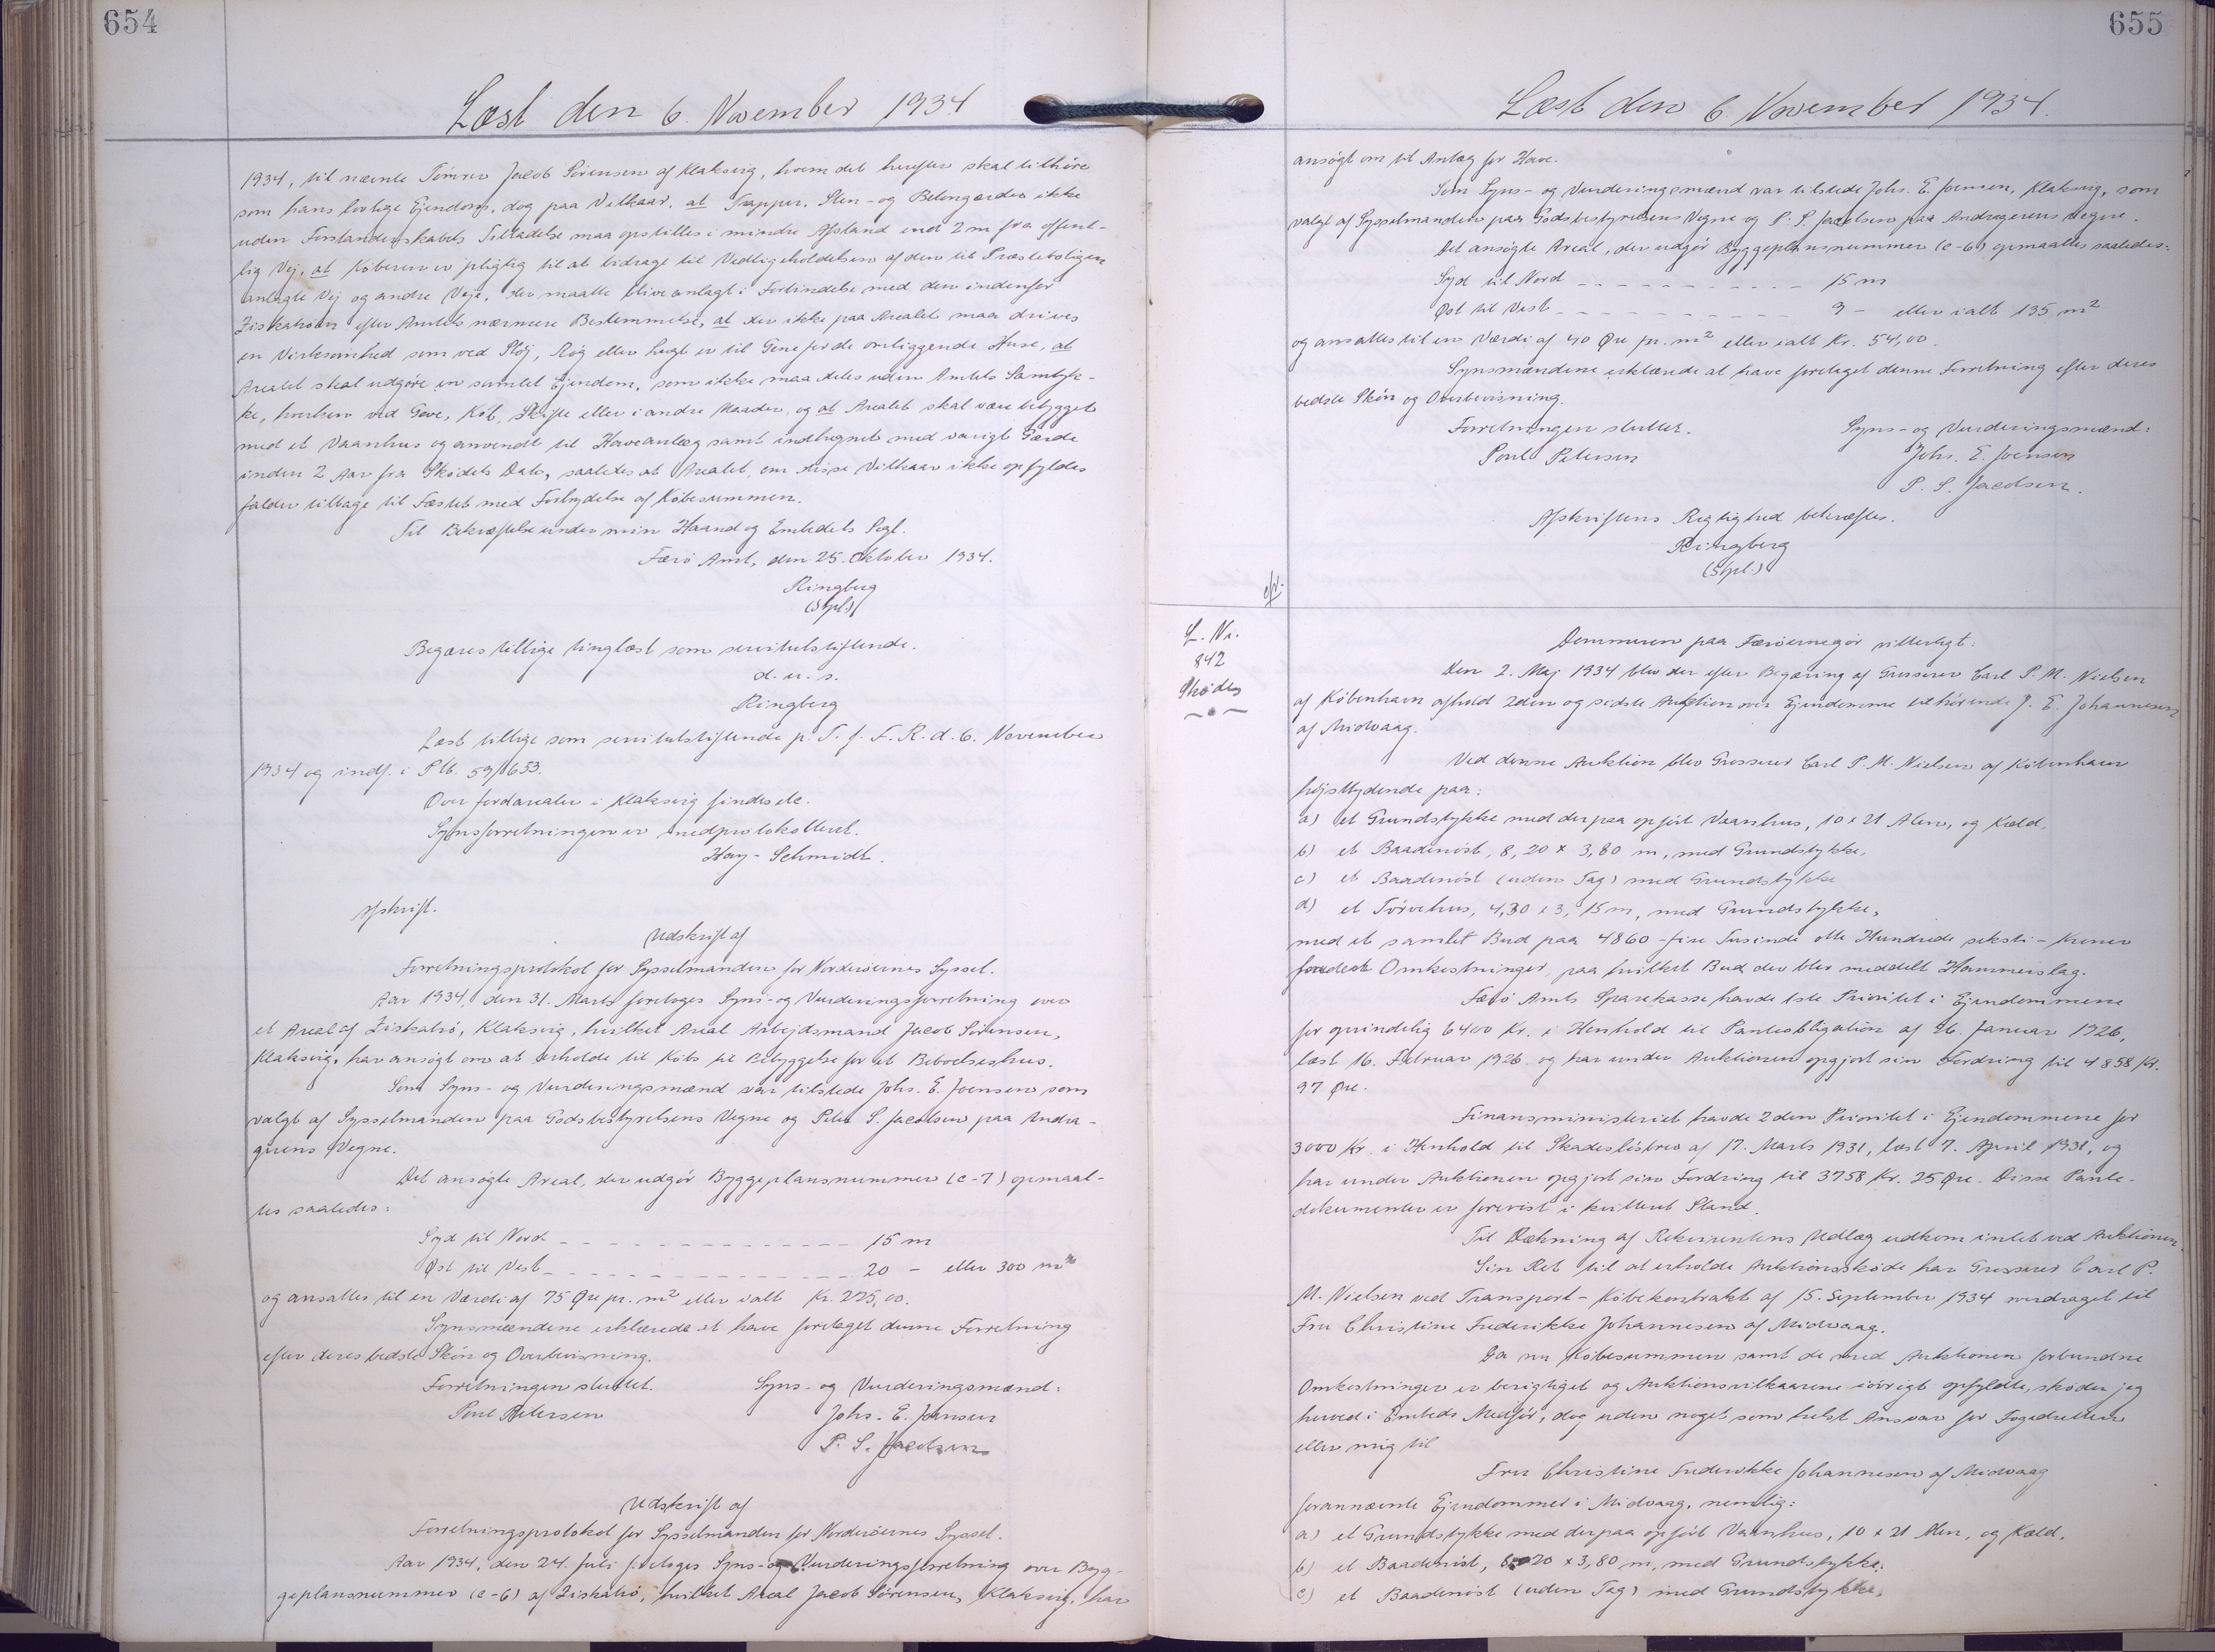 654
Læst den 6. November 1934
1934, til nævnte Tömrer Jacob Sörensen af Klaksvig, hvem det herefter skal tilhöre
som hans lovlige Ejendom, dog paa Vilkaar, at Trapper, Sten- og Betongærder ikke
uden Forstanderskabets Tilladelse maa opstilles i mindre Afstand end 2 m fra offent-
lig Vej, at Köberen er pligtig til at bidrage til Vedligeholdelsen af den til Præsteboligen
anlagte Vej og andre Veje, der maatte blive anlagt i Forbindelse med den indenfor
Ziskatröen efter Amtets nærmere Bestemmelse, at der ikke paa Arealet maa drives
en Virksomhed som ved Stöj, Røg eller lugt er til Gene for de omliggende Huse, at
Arealet skal udgöre en samlet Ejendom, som ikke maa deles uden Amtets Samtyk-
ke, hverken ved Gave, Köb, Skifte eller i andre Maader, og at Arealet skal være bebygget
med et Vaanhus og anvendt til Haveanlæg samt indhegnet med varigt Gærde
inden 2 Aar fra Sködets Dato, saaledes at Arealet, om disse Vilkaar ikke opfyldes
falder tilbage til Fæstet med Fortrydelse af Köbesummen.
Til Bekræftelse under min Haand og Embedets Segl.
Færö Amt, den 25. Oktober 1934.
Ringberg
(Sgl.)
Begæres tillige tinglæst som servitutstiftende.
d. u. s.
Ringberg
Læst tillige som servitutstiftende p. T. f. F. R. d. 6. November
1934 og indf. i Ptb. 59/653.
Over Jordarealer i Klaksvig findes dc.
Synsforretningen er medprotokolleret.
Hay-Schmidt.
Afskrift.
Udskrift af
Forretningsprotokol for Sysselmanden for Norderöernes Syssel.
Aar 1934, den 31. Marts foretoges Syns- og Vurderingsforretning over
et Areal af Ziskatrö, Klaksvig, hvilket Areal Arbejdsmand Jacob Sörensen,
Klaksvig, har ansögt om at erholde til Köbs til Bebyggelse for et Beboelseshus.
Som Syns- og Vurderingsmænd var tilstede Johs. E. Joensen som
valgt af Sysselmanden paa Godsbestyrelsens Vegne og Peter S. Jacobsen paa Andra-
gerens Vegne.
Det ansögte Areal, der udgör Byggeplansnummer (c-7) opmaal-
tes saaledes:
Syd til Nord - - - - - - - - - - 15 m
Øst til Vest - - - - - - - - - - 20 - eller 300 m²
og ansattes til en Værdi af 75 Øre pr. m² eller ialt Kr. 225,00.
Synsmændene erklærede at have foretaget denne Forretning
efter deres bedste Skön og Overbevisning.
Forretningen sluttet. Syns- og Vurderingsmænd:
Poul Petersen Johs. E. Joensen
P. S. Jacobsen
Udskrift af
Forretningsprotokol for Sysselmanden for Norderöernes Syssel.
Aar 1934, den 24. Juli foretoges Syns- og Vurderingsforretning over Byg-
geplansnummer (c-6) af Ziskatrö, hvilket Areal Jacob Sörensen, Klaksvig, har
655
Læst den 6. November 1934.
ansögt om til Anlæg for Have.
Som Syns- og Vurderingsmænd var tilstede Johs. E. Joensen, Klaksvig, som
valgt af Sysselmanden paa Godsbestyrelsens Vegne og P. S. Jacobsen paa Andragerens Vegne.
Det ansögte Areal, der udgör Byggeplansnummer (c-6) opmaaltes saaledes:
Syd til Nord - - - - - - - - - - 15 m
Øst til Vest - - - - - - - - - - 9 - eller ialt 135 m²
og ansattes til en Værdi af 40 Øre pr. m² eller ialt Kr. 54,00.
Synsmændene erklærede at have foretaget denne Forretning efter deres
bedste Skön og Overbevisning.
Forretningen sluttet. Syns- og Vurderingsmænd:
Poul Petersen Johs. E. Joensen
P. S. Jacobsen.
Afskriftens Rigtighed bekræftes.
Ringberg
(Sgl.)
L. Nr.
842
Skøde
Dommeren paa Færöerne gör vitterligt:
Den 2. Maj 1934 blev der efter Begæring af Grosserer Carl P. M. Nielsen
af København afholdt 2den og sidste Auktion over Ejendomme tilhörende J. E. Johannesen
af Midvaag.
Ved denne Auktion blev Grosserer Carl P. M. Nielsen af København
höjstbydende paa:
a) et Grundstykke med derpaa opfört Vaanhus, 10 x 21 Alen, og Kæld.
b) et Baadenöst, 8,20 x 3,80 m, med Grundstykke,
c) et Baadenöst (uden Tag) med Grundstykke
d) et Törvehus, 4,30 x 3,15 m, med Grundstykke,
med et samlet Bud paa 4860 - fire Tusinde otte Hundrede seksti - Kroner
foruden Omkostninger, paa hvilket Bud der blev meddelt Hammerslag.
Færö Amts Sparekasse havde 1ste Prioritet i Ejendommene
for oprindelig 6400 Kr. i Henhold til Panteobligation af 26. Januar 1926,
læst 16. Februar 1926. og har under Auktionen opgjort sin Fordring til 4858 Kr.
97 Øre.
Finansministeriet havde 2den Prioritet i Ejendommene for
3000 Kr. i Henhold til Skadeslösbrev af 17. Marts 1931, læst 7. April 1931, og
har under Auktionen opgjort sin Fordring til 3758 Kr. 25 Øre. Disse Pante-
dokumenter er forevist i kvitteret Stand.
Til Dækning af Rekvirentens Udlæg udkom intet ved Auktionen.
Sin Ret til at erholde Auktionsskøde har Grosserer Carl P.
M. Nielsen ved Transport-Köbekontrakt af 15. September 1934 overdraget til
Fru Christine Frederikke Johannesen af Midvaag.
Da nu Köbesummen samt de med Auktionen forbundne
Omkostninger er berigtiget og Auktionsvilkaarene iövrigt opfyldte, sköder jeg
herved i Embeds Medför, dog uden noget som helst Ansvar for Fogedretten
eller mig til
Fru Christine Frederikke Johannesen af Midvaag
forannævnte Ejendommel i Midvaag, nemlig:
a) et Grundstykke med derpaa opfört Vaanhus, 10 x 21 Alen, og Kæld.
b) et Baadenöst, 8,20 x 3,80 m, med Grundstykke.
c) et Baadenöst (uden Tag) med Grundstykke,